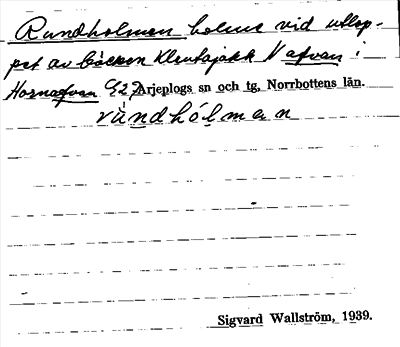 Rundholmen holme vid utlop-
pet av bäcken Klentajåkk N afvan i
Hornafvan G27 Arjeplogs sn och tg, Norrbottens län.
rùndhólman
Sigvard Wallström, 1939.